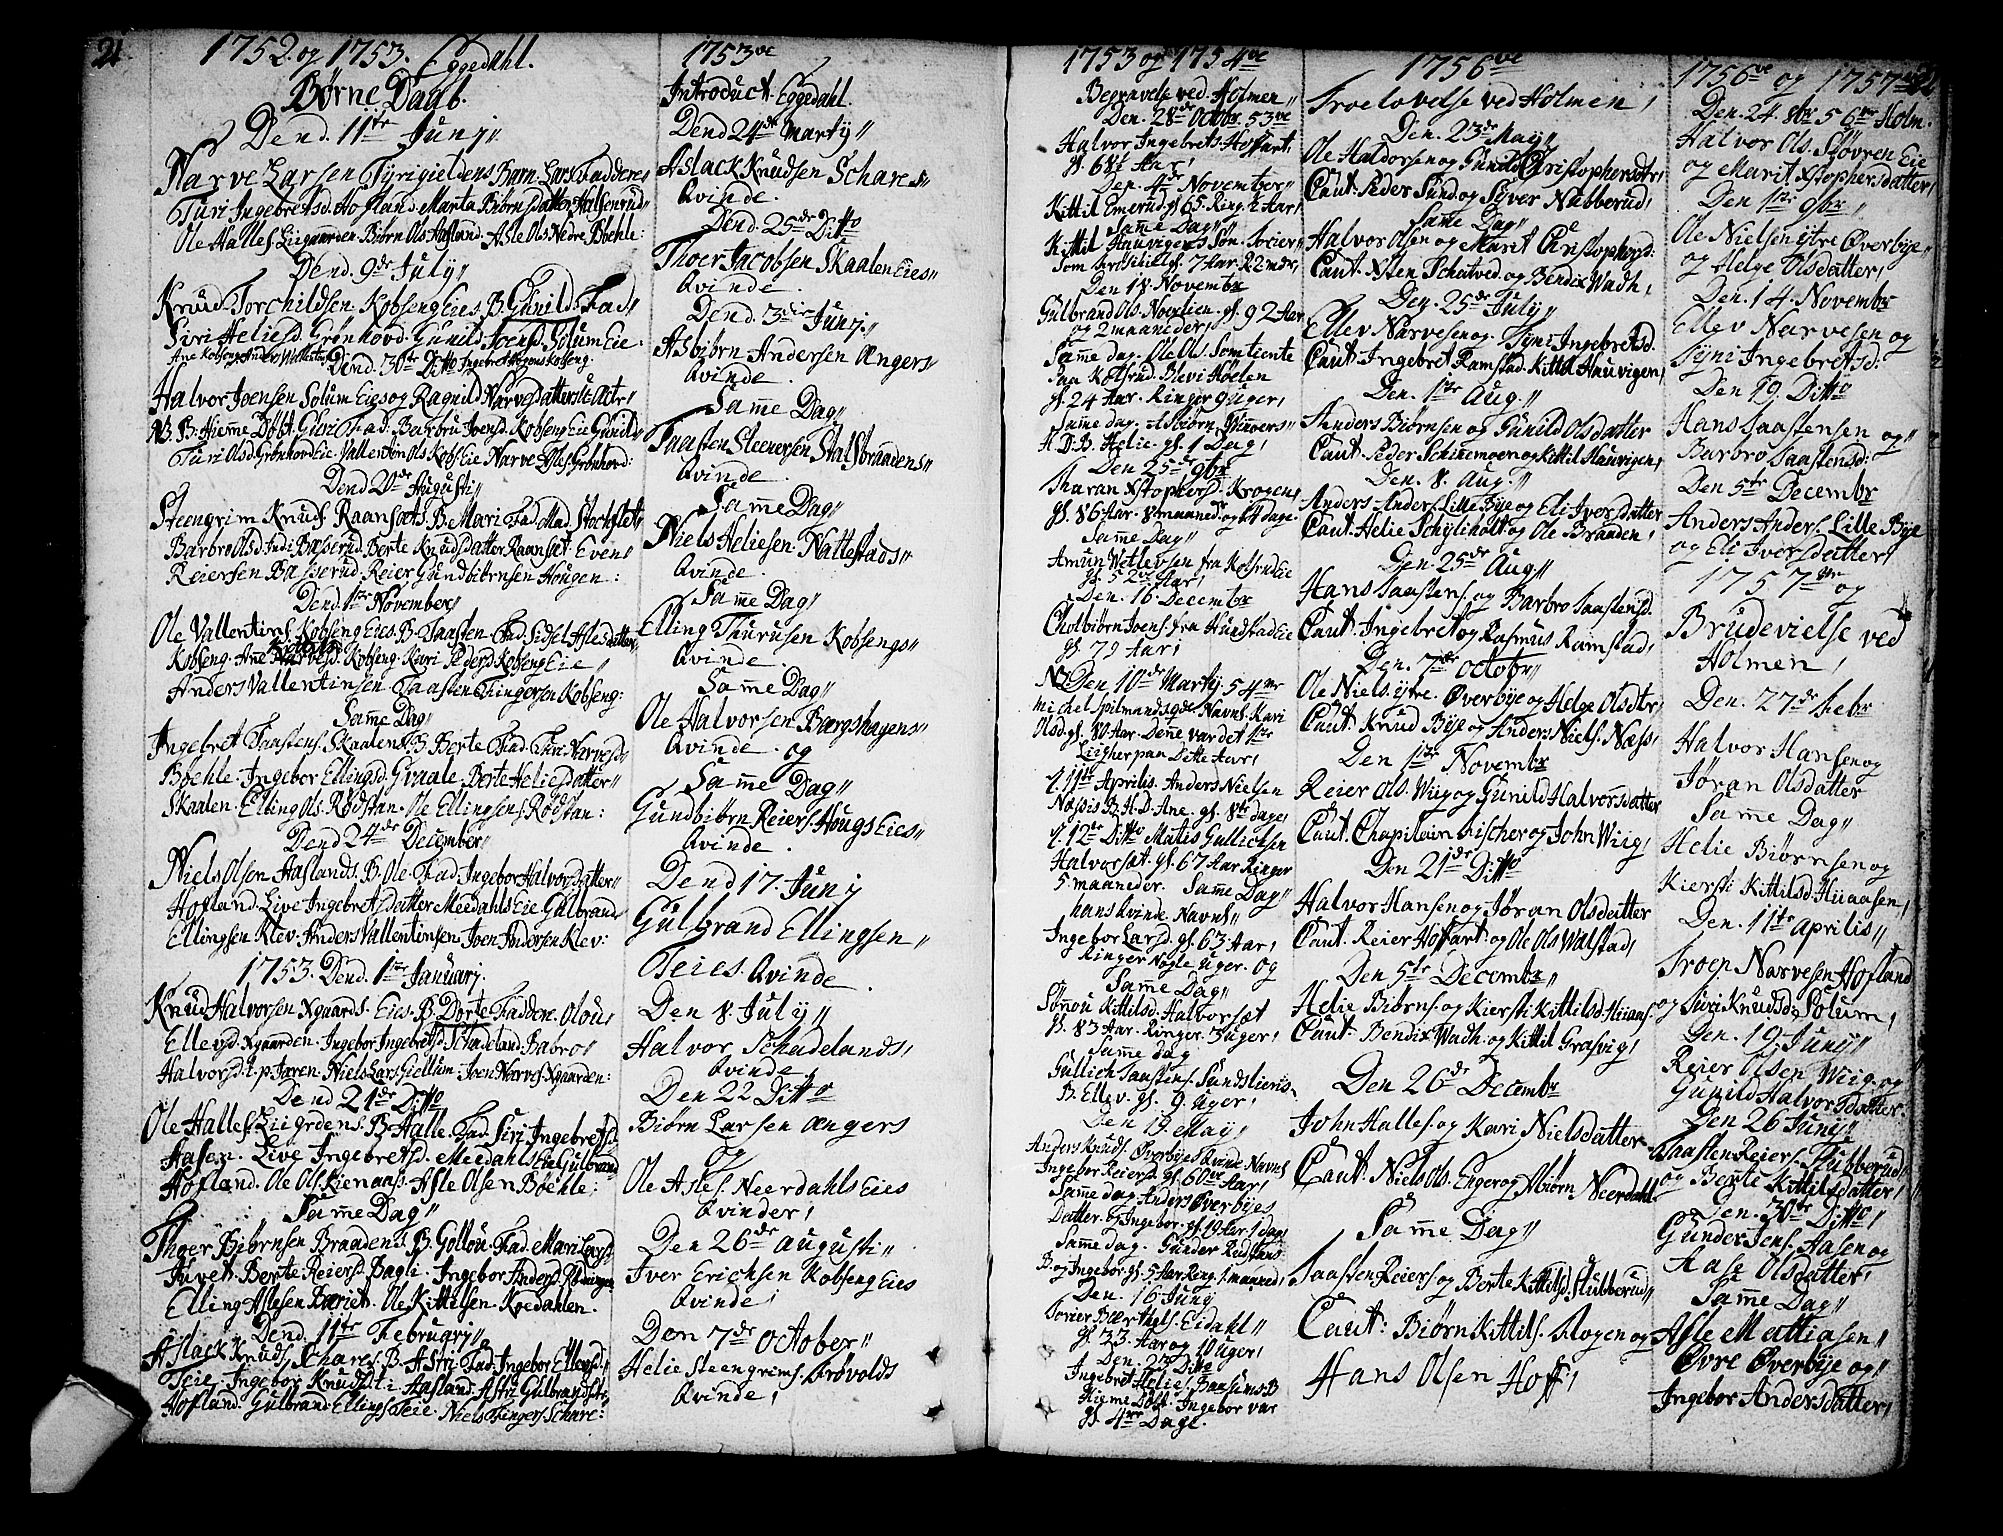 21
1752. og 1753. Eggedahl.
Børne Daab.
Dend. 11te Junj
Narve Larsen Tyrigieldens Barn. Lars. Faddere
Turi Ingebretsd. Hofland. Marta Biørnsdatter Halsenrud
Ole Halles. Liigaarden. Biørn Ols. Hafland. Asle Ols. Nedre Bøehle:
Dend. 9de July
Knud Torchildsen. Kobseng Eies. B. Gunild. Fad
Siri Helies d. Grønhovd. Gunild Joensd. Solum Eie.
Dend. 30te Ditto
Halvor Joensen Solum Eies og Ragnild Narvesdatters
NB. B. Hieme Døbt. Guri. Fad. Barbru Joensd. Kobseng Eie Gunild
Turi Olsd. Grønhovd Eie. Vallentin Ols. Kobs Eie Narve Asles. Grønhovd:
Dend 20de Augusti
Steengrim Knuds. Raansæts B. Mari. Fad. Mad. Stochflet
Barbro Olsd. Indi Basserud. Berte Knudsdatter Raansæt. Even
Reiersen Basserud. Reier Gundbiørnsen Hougen:
Dend. 1te November
Ole Vallentins. Kobseng Eies. B. Taasten. Fad. Sidsel Aslesdatter
Kobseng. Ane Narvesd. Kobseng. Kari Pedersd. Kobseng Eie
Anders Vallentinsen. Taasten Thingersen Kobseng:
Same Dag
Ingebret Taastens. Skaalens. B. Berte. Fad. Turi Narvesd.
Bøehle. Ingebor Ellingsd. Gvaale. Berte Heliesdatter
Skaalen. Elling Ols. Rødstan. Ole Ellingsens. Rødstan:
Dend 24de December
Niels Olsen Haflands. B. Ole. Fad. Ingebor Halvorsdatter
Hofland. Live Ingebretsdatter Meedahls Eie. Gulbrand
Ellingsen Klev. Anders Vallentinsen. Joen Andersen Klev:
1753. Dend. 1te Januarj.
Knud Halvorsen Xgaards. Eies. B. Dorte. Faddere. Olou
Ellevsd. Xgaarden. Ingebor Ingebretsd. Schadeland. Babro
Halvorsd. t. p. Jaren. Niels Lars. Giellum. Joen Narves. Xgaarden:
Dend 21de Ditto
Ole Halles. Liigrdens. B. Halle. Fad. Siri Ingebretsd.
Hafen. Live Ingebretsd. Meedahls Eie Gulbrand
Hofland. Ole Ols. Kienaas. Asle Olsen Bøehle:
Same Dag
Thoer Biørnsen Braadens. B. Gollou. Fad. Mari Larsd.
Juvet. Berte Reiersd. Bagli. Ingebor Andersd.
Elling Aslesen Bæriet. Ole Kittilsen. Kvedahlen.
Dend. 11te Februarj
Aslack Knuds. Schares. B. Astri. Fad. Ingebor Ellevsd.
Teie. Ingebor Knudsd. i Hafland. Astri Gulbrandsd.
Hofland. Gulbrand Ellings. Teie. Niels Thingers. Schare:
1753ve
Introduct. Eggedahl.
Dend 24de Martij
Aslack Knudsen Schares
Qvinde.
Dend. 25de Ditto
Thoer Jacobsen Skaalen Eies
Qvinde.
Dend. 3die Junj.
Asbiørn Andersen Ængers
Qvinde.
Same Dag
Taasten Steenersen Stalsbraadens
Qvinde.
Same Dag
Niels Heliesen. Nattestads
Qvinde.
Same Dag
Elling Thurusen Kobsengs
Qvinde.
Same Dag
Ole Halvorsen Bærgshagens
Qvinde. og
Same Dag
Gundbiørn Reiers. Hougs Eies
Qvinde.
Dend 17. Junj
Gulbrand Ellingsen
Teies. Qvinde.
Den 8. July
Halvor Schadelands
Qvinde.
Den 22 Ditto
Biørn Larsen Ængers
og
Ole Asles. Neerdahls Eies
Qvinder
Den 26de Augusti
Iver Erichsen Kobseng Eies
Qvinde
Den 7de October
Helie Steengrims. Brøvolds
Qvinde
1753 og 1754ve
Begravelse ved Holmen
Den. 28de Octobr. 53ve
Halvor Ingebrets. Hoffart.
gl. 68½ Aar
Den. 4de November
Kittil Emerud. gl. 65. Ring. 2 Aar
Same Dag
Kittil Hauvigens Søn. Socier
gl. 7 Aar
Den 18. Novembr
Gulbrand Ols. Novelien. gl. 92 Aar
og 2 maaneder
Same dag. Ole Ols. Somtiente
paa Kolsrud. Blevi Hoelen
gl. 24 Aar. Ringer 9 uger
Same dag.
H. D. B. Helie. gl. 1 Dag
Den 25de 9br
Tharan Xstophersd. Krogen
gl. 86 Aar. 8 maaned. og 14 dage.
Same Dag
Amun Wetlevsen fra Kolsrud Eie
gl. 52 Aar
Den. 16 Decembr
Cholbiørn Joens. fra Hundstad Eie
gl. 79 Aar
NB Den 10de Martij 54ve
Michel Spilmands Navnl. Kari
Olsd. gl. 80 Aar. Dene var det 1te
Liigher paa Ditte Aar
d. 11te Aprilis. Anders Nielsen
Næssis B. H. D. Ane. gl. 8te dage
d. 12te Ditto Matis Gullichsen
Halvorsæt. gl. 67 Aar Ringer
5. maaneder. Same Dag
hans Qvinde Navnl.
Ingebor Larsd. gl. 63. Aar
Ringer Nogle Uger. og
Same Dag
Sønou Kittilsd. Halvorsæt
gl. 83 Aar. Ringer. 3 uger
Same dag
Gullich Taastens. Sundslieris.
B. Ellev. gl. 9. Uger
Den 19 Maij
Anders Knuds. Øverbyes Qvinde Navnl.
Ingebor Reiersd. gl. 60 Aar
Same dag. Anders Øverbyes
Datter. B. Ingebor. gl. 19 Aar. 1 dag
Same dag. Gunder Rudstans
B. og Ingebor. gl. 5 Aar Ring. 1. maaned
Den. 16 Junj
Eidahl
gl. 33. Aar og 10 Uger
Den. 21de Ditto
Ingebret Helies. Baasums B
Hieme Døbt. Ingebor var
gl. 4re Dage.
1756ve
Troelovelse ved Holmen
Den. 23de Maij
Ole Haldorsen og Gunild Christophersdtr
Caut. Peder Sund og Syver Nubberud
Same Dag
Halvor Olsen og Marit Christophersd:
Caut. Xsten Schatved. og Bendix Wadh
Den. 25de July
Ellev Narvesen og. Tyni Ingebretsd.
Caut. Ingebret Ramstad. Kittil Hauvigen
Den. 1te Aug.
Anders Biørnsen og Gunild Olsdatter
Caut. Peder Schinemoen og Kittil Hauvigen
Den. 8. Aug.
Anders Anders. Lille Bye og Eli Iversdatter
Caut. Helie Schylieholt og Ole Braaden
Den 25de Aug
Hans Taastens. og Barbro Taastensd.
Caut. Ingebret og Rasmus Ramstad
Den. 7de Octobr
Ole Niels. ytre. Øverbye og Helge Olsdtr
Caut. Knud Bye og Anders Niels. Næss
Den 1te Novembr
Reier Ols. Wiig og Gunild Halvorsdatter
Caut. Chapelain Fischer og John Wiig
Den 21de Ditto
Halvor Hansen og Jøran Olsdatter
Caut. Reier Hoffart. og Ole Ols. Walstad
Den 5te Decembr
Helie Biørns. og Kiersti Kittilsd. Hiiaas.
Caut. Bendix Wadh. og Kittil Grasvig
Den 26de Decembr
John Halles. og Kari Nielsdatter
Caut. Niels Ols. Enger og Abiørn Neerdahl
Same Dag
Taasten Reiers og Berte Kittilsd. Stubberud
Caut: Biørn Kittils. Rogen og
Hans Olsen Hoff
1756ve og 1757
Den. 24. 8br. 56 Holm.
Halvor Ols. Støvren Eie
og Marit Xstophersdatter
Den 1te 9br
Ole Nielsen ytre Øverbye
og Helge Olsdatter
Den. 14. Novembr
Ellev Narvesen og
Tyni Ingebretsd:
Den 19. Ditto
Hans Taastensen og
Barbro Taastensd:
Den 5te Decembr
Anders Anders. Lille Bye
og Eli Iversdatter
1757 og
Brudevielse ved
Holmen
Den. 27de Febr
Halvor Hansen og
Jøran Olsdatter
Same Dag
Helie Biørnsen og
Kiersti Kittilsd. Hiiaasen
Den. 11te Aprilis
Troep Narvesen Hofland
og Turi Knudsd. Solum
Den. 19. Junij
Reier Olsen Wiig. og
Gunild Halvorsdatter.
Den 26 Junij
Taasten Reiers. Stubberud
og Berte Kittilsdatter
Den. 30te Ditto
Gunder Jens. Aasen og
Aase Olsdatter
Same Dag
Asle Mattiasen
Øvre Øverbye og
Ingebor Andersdatter